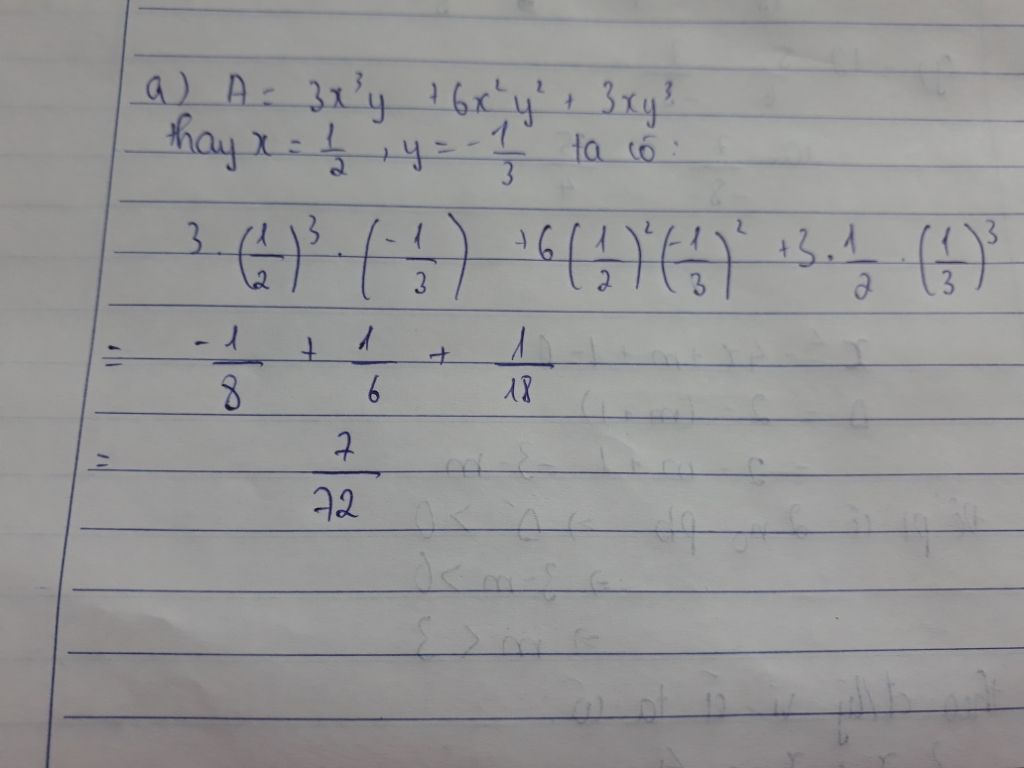 a) A = 3x³y + 6x²y² + 3xy³
thay x = 1/2 , y = -1/3 ta có :
3 . (1/2)³ . (-1/3) + 6 (1/2)² (-1/3)² + 3 . 1/2 . (1/3)³
= -1/8 + 1/6 + 1/18
= 7/72